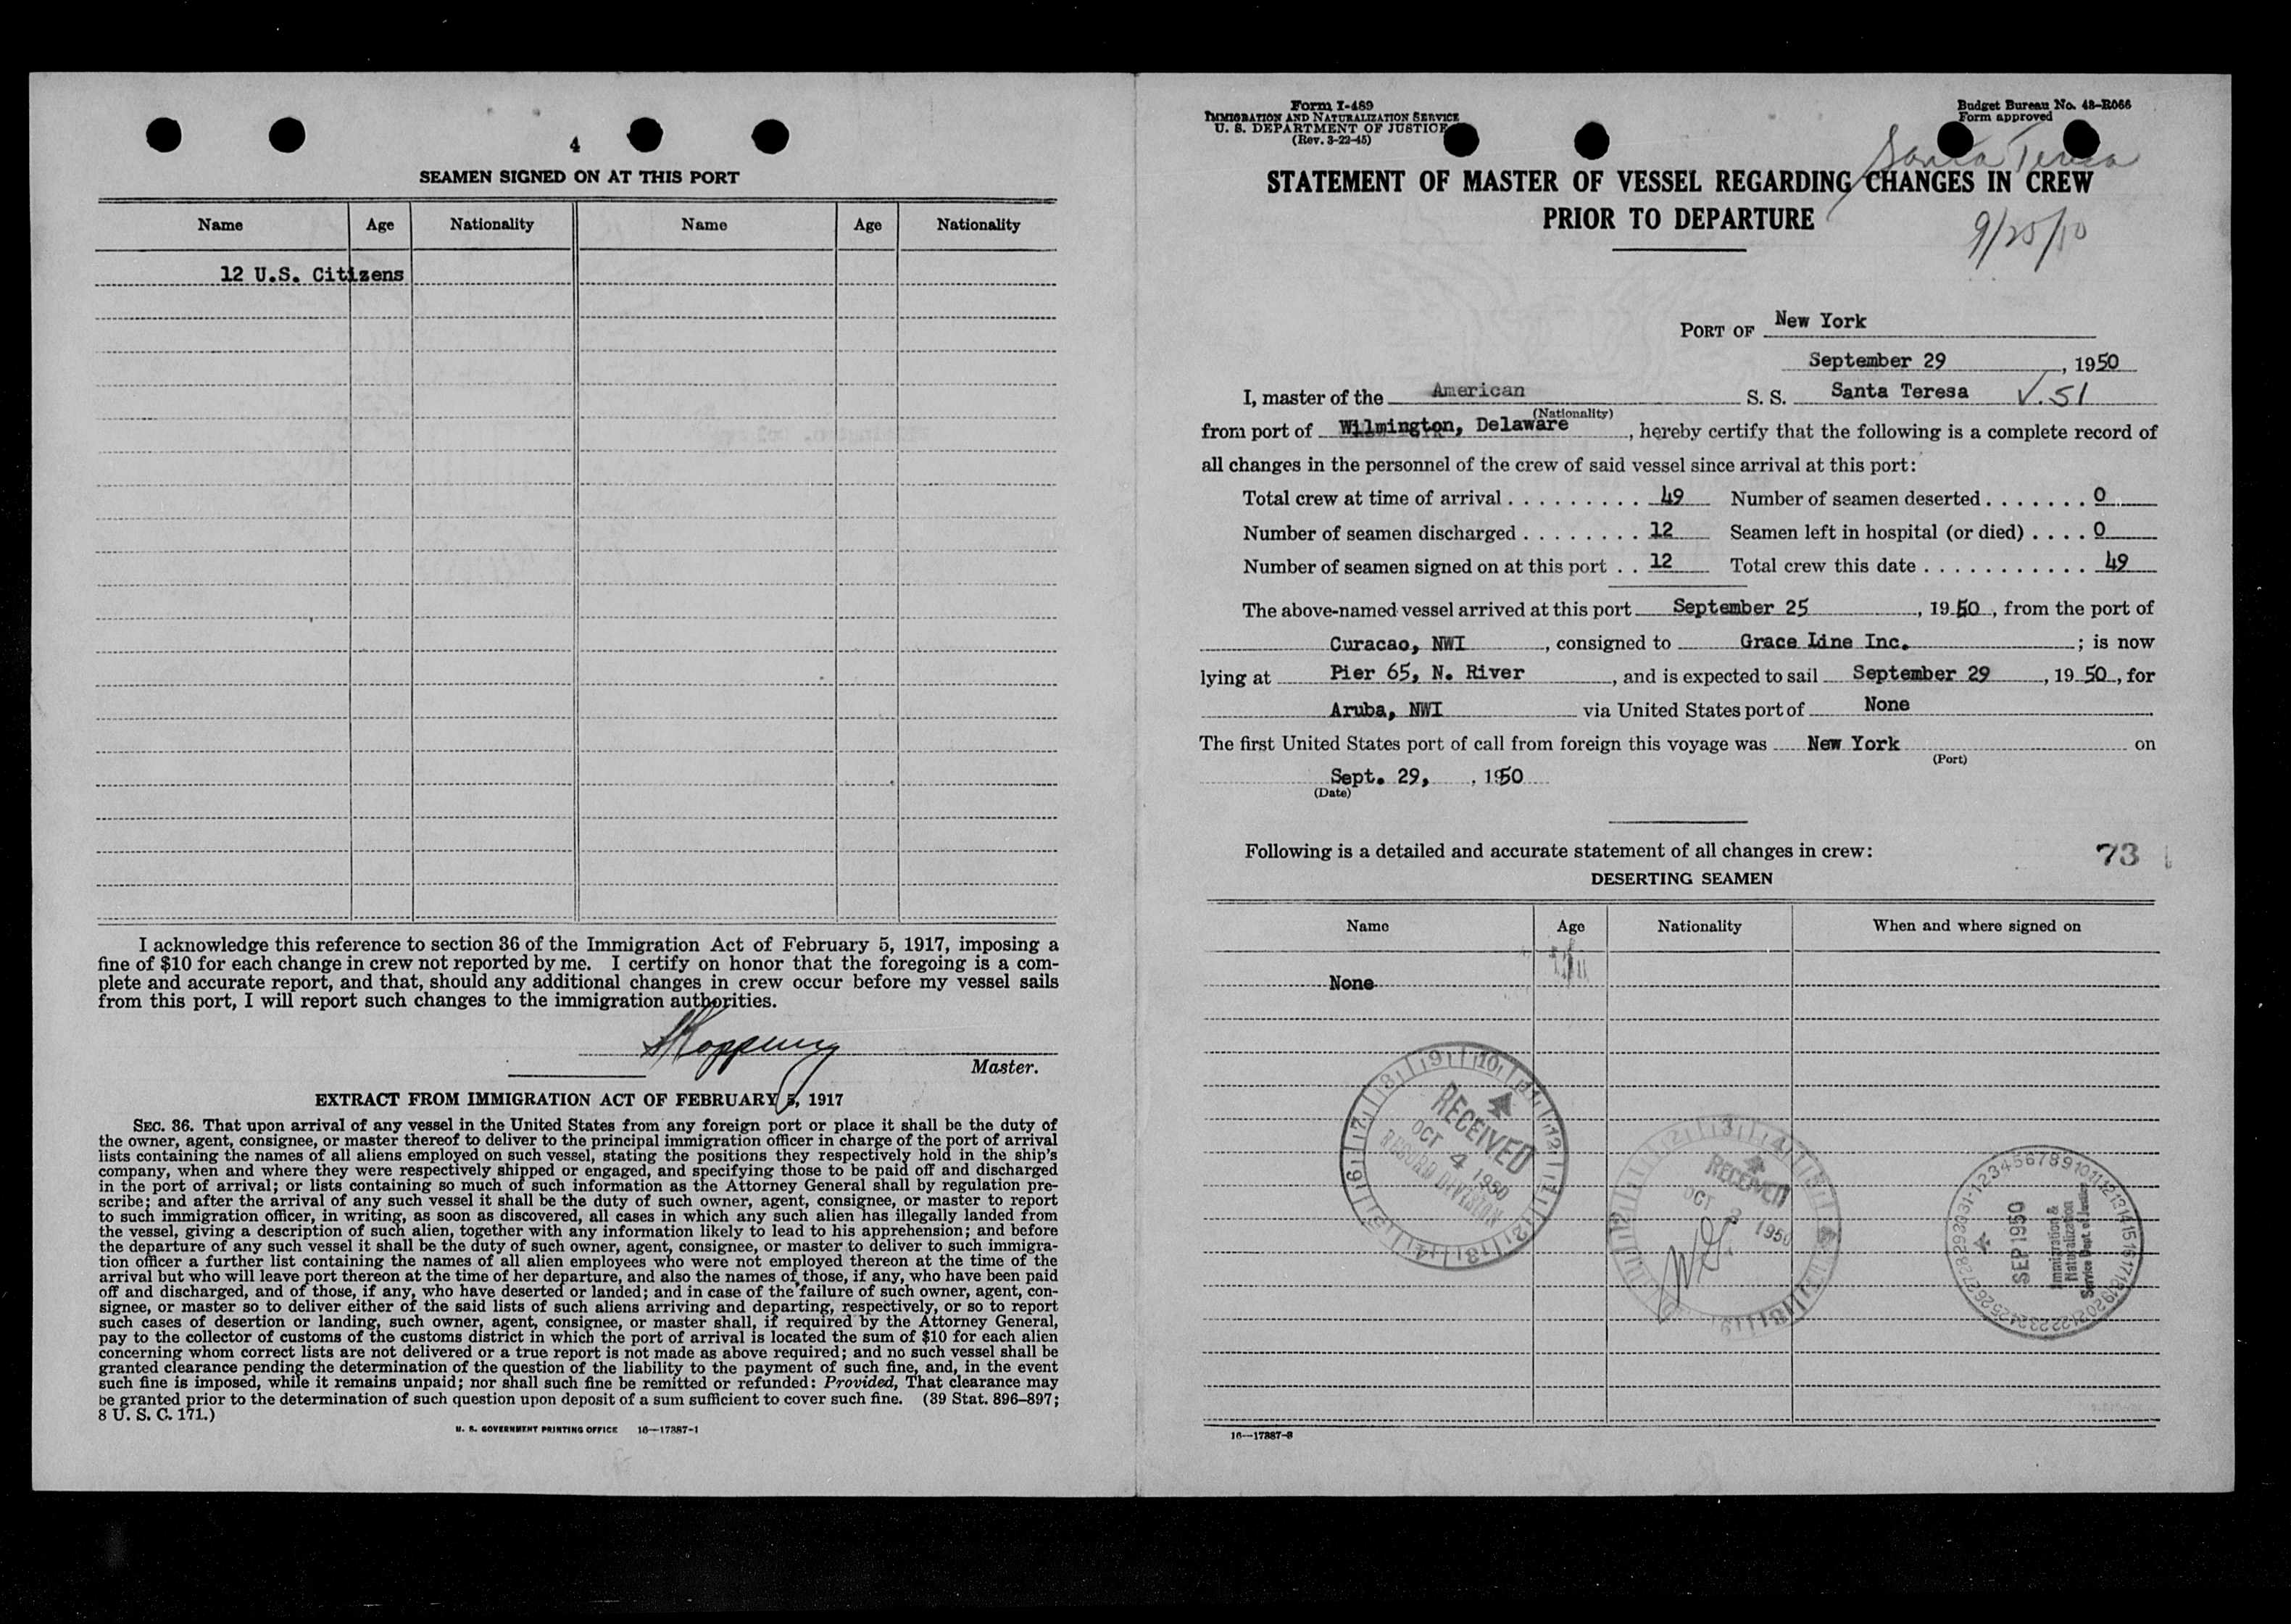 4
SEAMEN SIGNED ON AT THIS PORT
Name Age Nationality Name Age Nationality
12 U.S. Citizens
I acknowledge this reference to section 36 of the Immigration Act of February 5, 1917, imposing a
fine of $10 for each change in crew not reported by me. I certify on honor that the foregoing is a com-
plete and accurate report, and that, should any additional changes in crew occur before my vessel sails
from this port, I will report such changes to the immigration authorities.
Master.
EXTRACT FROM IMMIGRATION ACT OF FEBRUARY 5, 1917
SEC. 36. That upon arrival of any vessel in the United States from any foreign port or place it shall be the duty of
the owner, agent, consignee, or master thereof to deliver to the principal immigration officer in charge of the port of arrival
lists containing the names of all aliens employed on such vessel, stating the positions they respectively hold in the ship's
company, when and where they were respectively shipped or engaged, and specifying those to be paid off and discharged
in the port of arrival; or lists containing so much of such information as the Attorney General shall by regulation pre-
scribe; and after the arrival of any such vessel it shall be the duty of such owner, agent, consignee, or master to report
to such immigration officer, in writing, as soon as discovered, all cases in which any such alien has illegally landed from
the vessel, giving a description of such alien, together with any information likely to lead to his apprehension; and before
the departure of any such vessel it shall be the duty of such owner, agent, consignee, or master to deliver to such immigra-
tion officer a further list containing the names of all alien employees who were not employed thereon at the time of the
arrival but who will leave port thereon at the time of her departure, and also the names of those, if any, who have been paid
off and discharged, and of those, if any, who have deserted or landed; and in case of the failure of such owner, agent, con-
signee, or master so to deliver either of the said lists of such aliens arriving and departing, respectively, or so to report
such cases of desertion or landing, such owner, agent, consignee, or master shall, if required by the Attorney General,
pay to the collector of customs of the customs district in which the port of arrival is located the sum of $10 for each alien
concerning whom correct lists are not delivered or a true report is not made as above required; and no such vessel shall be
granted clearance pending the determination of the question of the liability to the payment of such fine, and, in the event
such fine is imposed, while it remains unpaid; nor shall such fine be remitted or refunded: Provided, That clearance may
be granted prior to the determination of such question upon deposit of a sum sufficient to cover such fine. (39 Stat. 896–897;
8 U. S. C. 171.)
U. S. GOVERNMENT PRINTING OFFICE 16—17387-1
Form I-489
IMMIGRATION AND NATURALIZATION SERVICE
U. S. DEPARTMENT OF JUSTICE
(Rev. 3-22-45)
Budget Bureau No. 43-R066
Form approved
Santa Teresa
STATEMENT OF MASTER OF VESSEL REGARDING CHANGES IN CREW
PRIOR TO DEPARTURE
9/25/50
PORT OF New York
September 29, 1950
I, master of the American S. S. Santa Teresa V. 51
(Nationality)
from port of Wilmington, Delaware, hereby certify that the following is a complete record of
all changes in the personnel of the crew of said vessel since arrival at this port:
Total crew at time of arrival . . . . . . . . . 49 Number of seamen deserted . . . . . . . 0
Number of seamen discharged . . . . . . . . 12 Seamen left in hospital (or died) . . . . 0
Number of seamen signed on at this port . . 12 Total crew this date . . . . . . . . . . . 49
The above-named vessel arrived at this port September 25, 1950, from the port of
Curacao, NWI, consigned to Grace Line Inc.; is now
lying at Pier 65, N. River, and is expected to sail September 29, 1950, for
Aruba, NWI via United States port of None
The first United States port of call from foreign this voyage was New York on
(Port)
Sept. 29, , 1950
(Date)
Following is a detailed and accurate statement of all changes in crew: 73
DESERTING SEAMEN
Name Age Nationality When and where signed on
None
RECEIVED
OCT 4 1950
RECORD DIVISION
RECEIVED
OCT 3 1950
SEP 1950
Immigration &
Naturalization
Service Dept. of Justice
16—17387-3